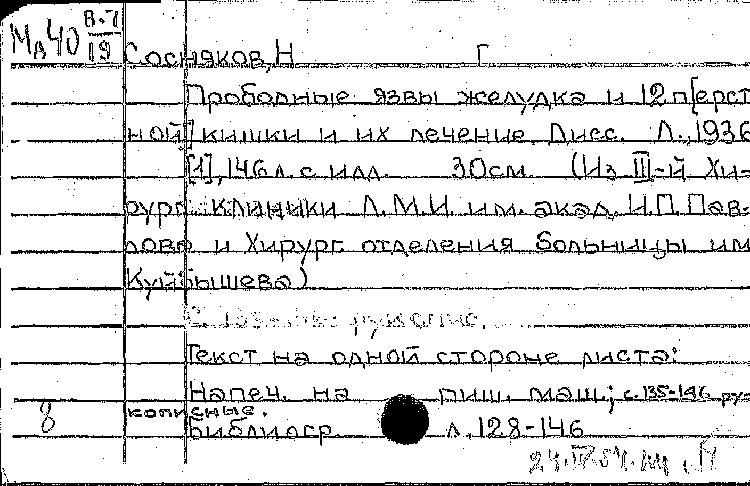 Мд 40 В-7/19
Сосняков, Н Г
Прободные язвы желудка и 12п[ерст
ной] кишки и их лечение. Дисс. Л., 1936
[1], 146 л. с илл. 30см (Из II-й Хи-
рург. клиники Л.М.И. им. акад. И.П.Пав-
лова и Хирург. отделения больницы им
Куйбышева)
Текст на одной стороне листа:
Напеч. на пиш. маш.; с. 135-146 ру-
кописные.
8
Библиогр л. 128-146